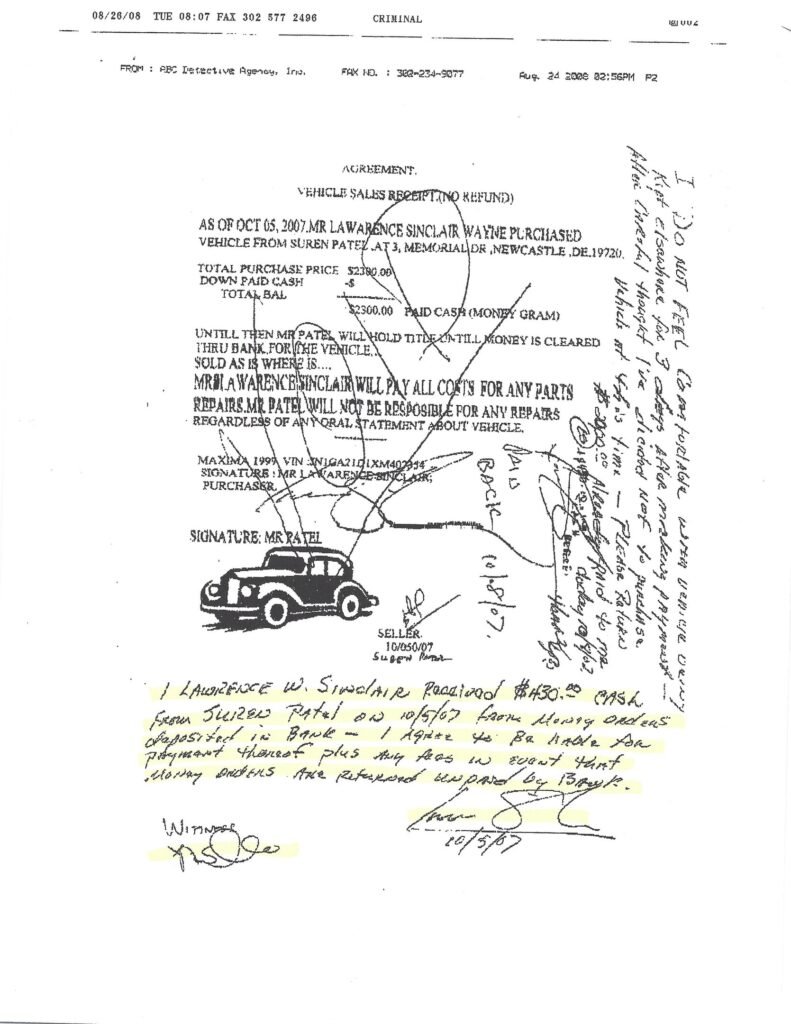 08/26/08 TUE 08:07 FAX 302 577 2496 CRIMINAL
FROM : ABC Detective Agency, Inc. FAX NO. : 302-234-9077 Aug. 24 2008 02:56PM P2
AGREEMENT.
VEHICLE SALES RECEIPT.(NO REFUND)
AS OF OCT 05, 2007.MR LAWARENCE SINCLAIR WAYNE PURCHASED
VEHICLE FROM SUREN PATEL .AT 3, MEMORIAL DR ,NEWCASTLE ,DE.19720.
TOTAL PURCHASE PRICE $2300.00
DOWN PAID CASH -$
TOTAL BAL
$2300.00 PAID CASH (MONEY GRAM)
UNTILL THEN MR PATEL WILL HOLD TITLE UNTILL MONEY IS CLEARED
THRU BANK.FOR THE VEHICLE...
SOLD AS IS WHERE IS....
LAWARENCE SINCLAIR WILL PAY ALL COSTS FOR ANY PARTS
REPAIRS.MR PATEL WILL NOT BE RESPOSIBLE FOR ANY REPAIRS
REGARDLESS OF ANY ORAL STATEMENT ABOUT VEHICLE.
MAXIMA 1999 VIN
SIGNATURE : MR LAWARENCE SINCLAIR,
PURCHASER.
SIGNATURE: MR PATEL
SELLER.
10/050/07
SUREN PATEL
PAID
BACK 10/8/07.
I DO NOT FEEL COMFORTABLE WITH VEHICLE BEING
KEPT ELSEWHERE FOR 3 days AFTER MAKING PAYMENT —
AFTER CAREFUL thought I've decided NOT to purchase
Vehicle AT this time — PLEASE RETURN
$2000.00 Already PAID to me
today 10/8/07
I LAWRENCE W. SINCLAIR RECEIVED $430.00 CASH
FROM SUREN PATEL ON 10/5/07 FROM MONEY ORDERS
deposited in BANK — I AGREE to BE liable for
payment thereof plus ANY fees in EVENT that
MONEY ORDERS ARE RETURNED UNPAID by BANK.
WITNESS
10/5/07